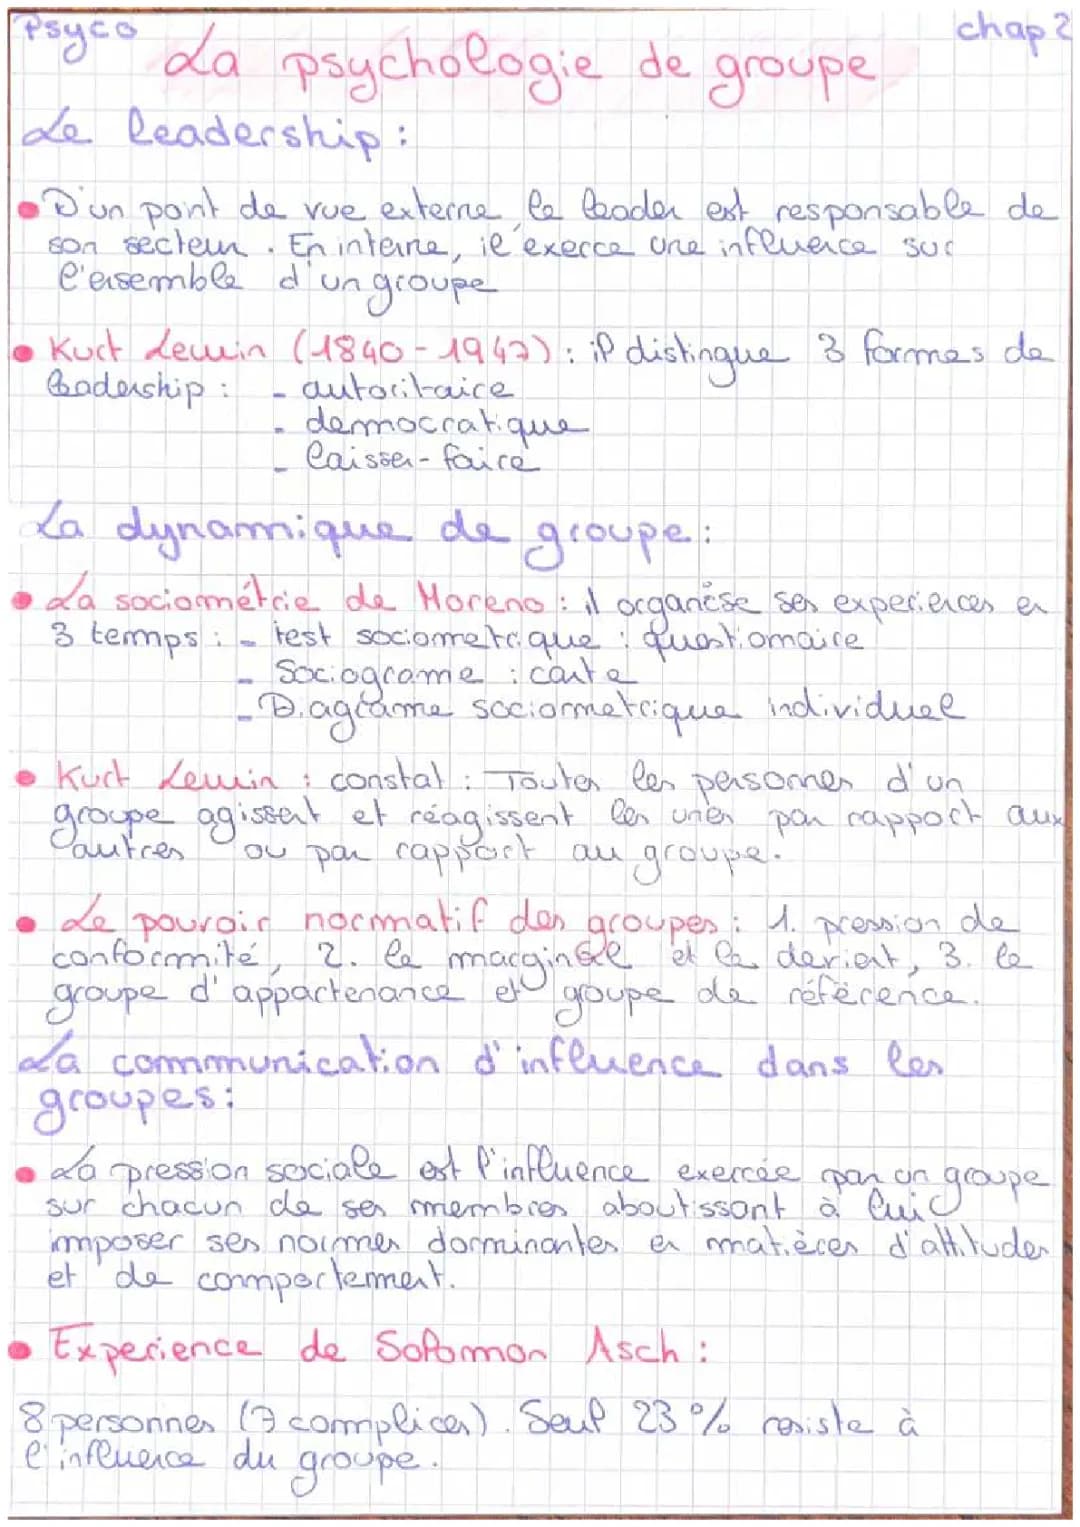 Psyco
chap 2
La psychologie de groupe
Le leadership :
• D'un point de vue externe le leader est responsable de
son secteur. En interne, il exerce une influence sur
l'ensemble d'un groupe
• Kurt Lewin (1840-1947) : il distingue 3 formes de
leadership : - autoritaire
- democratique
- laisser-faire
La dynamique de groupe :
• La sociométrie de Moreno : il organise ses experiences en
3 temps : - test sociometrique : questionnaire
- Sociograme : carte
- Diagrame sociometrique individuel
• Kurt Lewin : constat : Toutes les personnes d'un
groupe agissent et réagissent les unes par rapport aux
autres ou par rapport au groupe.
• Le pouvoir normatif des groupes : 1. pression de
conformité, 2. le marginal et le deviant, 3. le
groupe d'appartenance et groupe de référence.
La communication d'influence dans les
groupes :
• La pression sociale est l'influence exercée par un groupe
sur chacun de ses membres aboutissant à lui
imposer ses normes dominantes en matières d'attitudes
et de comportement.
• Experience de Solomon Asch :
8 personnes (7 complices). Seul 23 % resiste à
l'influence du groupe.